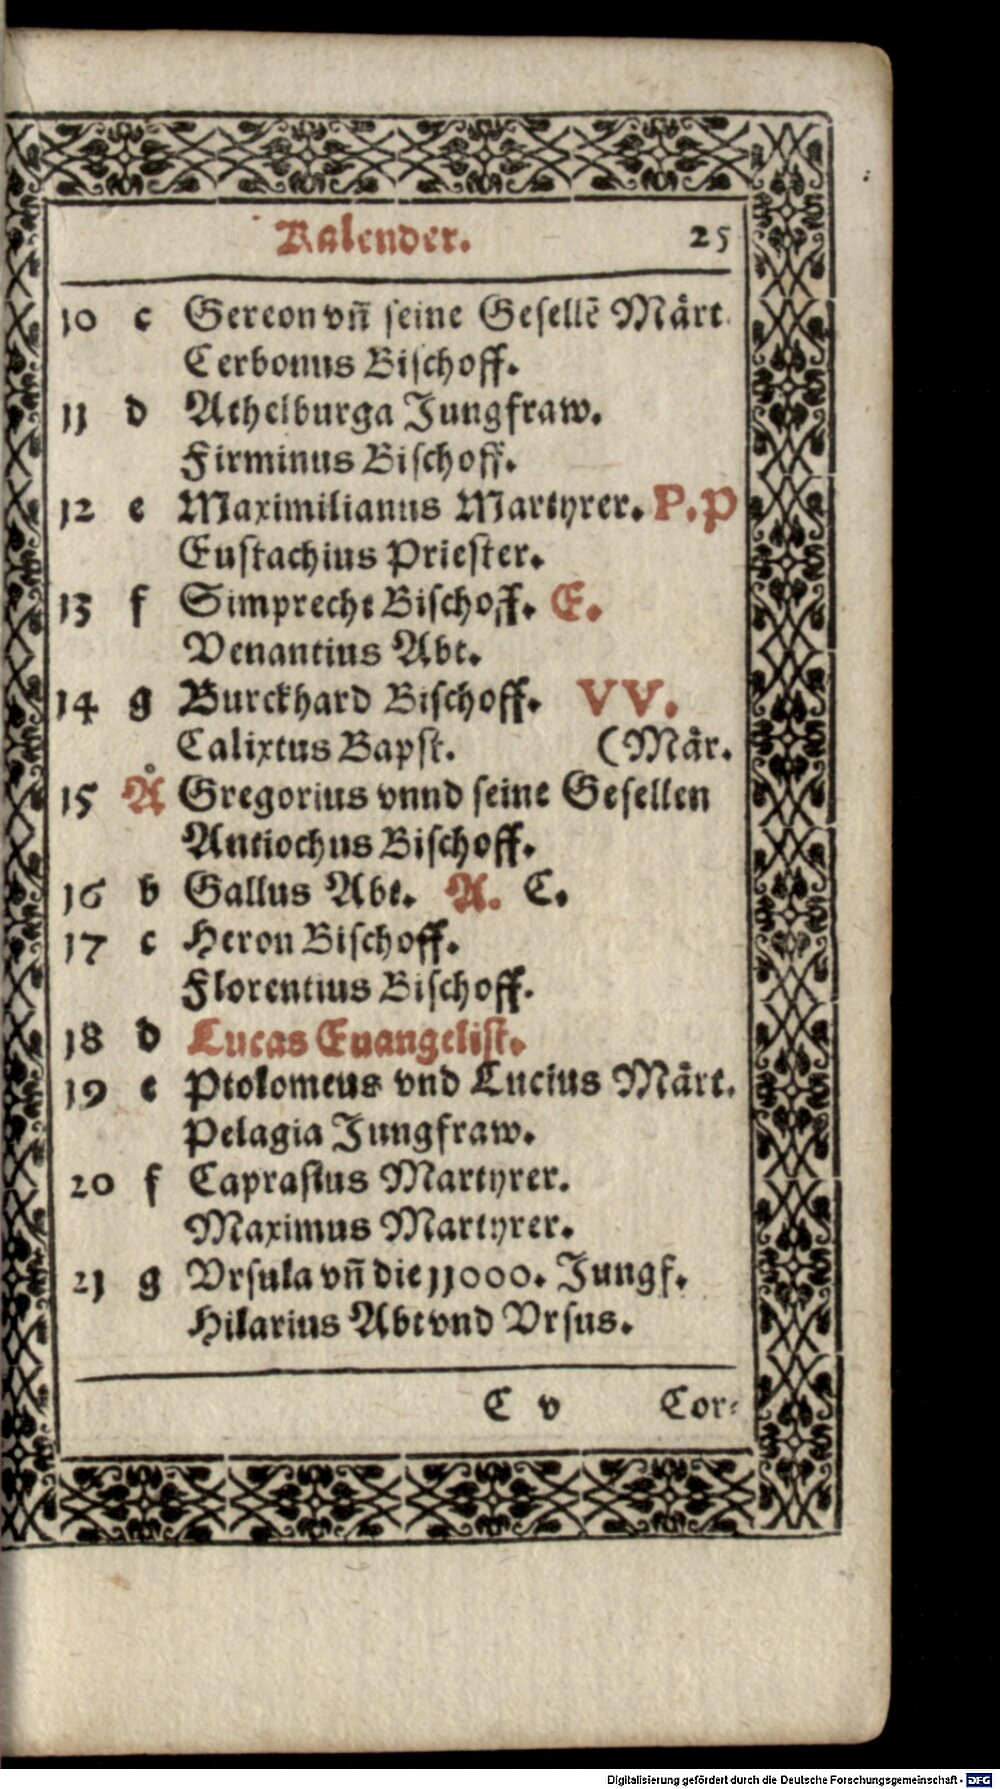 Kalender. 25
10 c Gereon vñ seine Gesellẽ Märt.
Cerbonus Bischoff.
11 d Athelburga Jungfraw.
Firminus Bischoff.
12 e Maximilianus Martyrer. P.P
Eustachius Priester.
13 f Simprecht Bischoff. E.
Venantius Abt.
14 g Burckhard Bischoff. VV.
Calixtus Bapst. (Mär.
15 Å Gregorius vnnd seine Gesellen
Antiochus Bischoff.
16 b Gallus Abt. A. C.
17 c Heron Bischoff.
Florentius Bischoff.
18 d Lucas Euangelist.
19 e Ptolomeus vnd Lucius Märt.
Pelagia Jungfraw.
20 f Caprasius Martyrer.
Maximus Martyrer.
21 g Vrsula vñ die 11000. Jungf.
Hilarius Abt vnd Vrsus.
C v Cor-
Digitalisierung gefördert durch die Deutsche Forschungsgemeinschaft - DFG